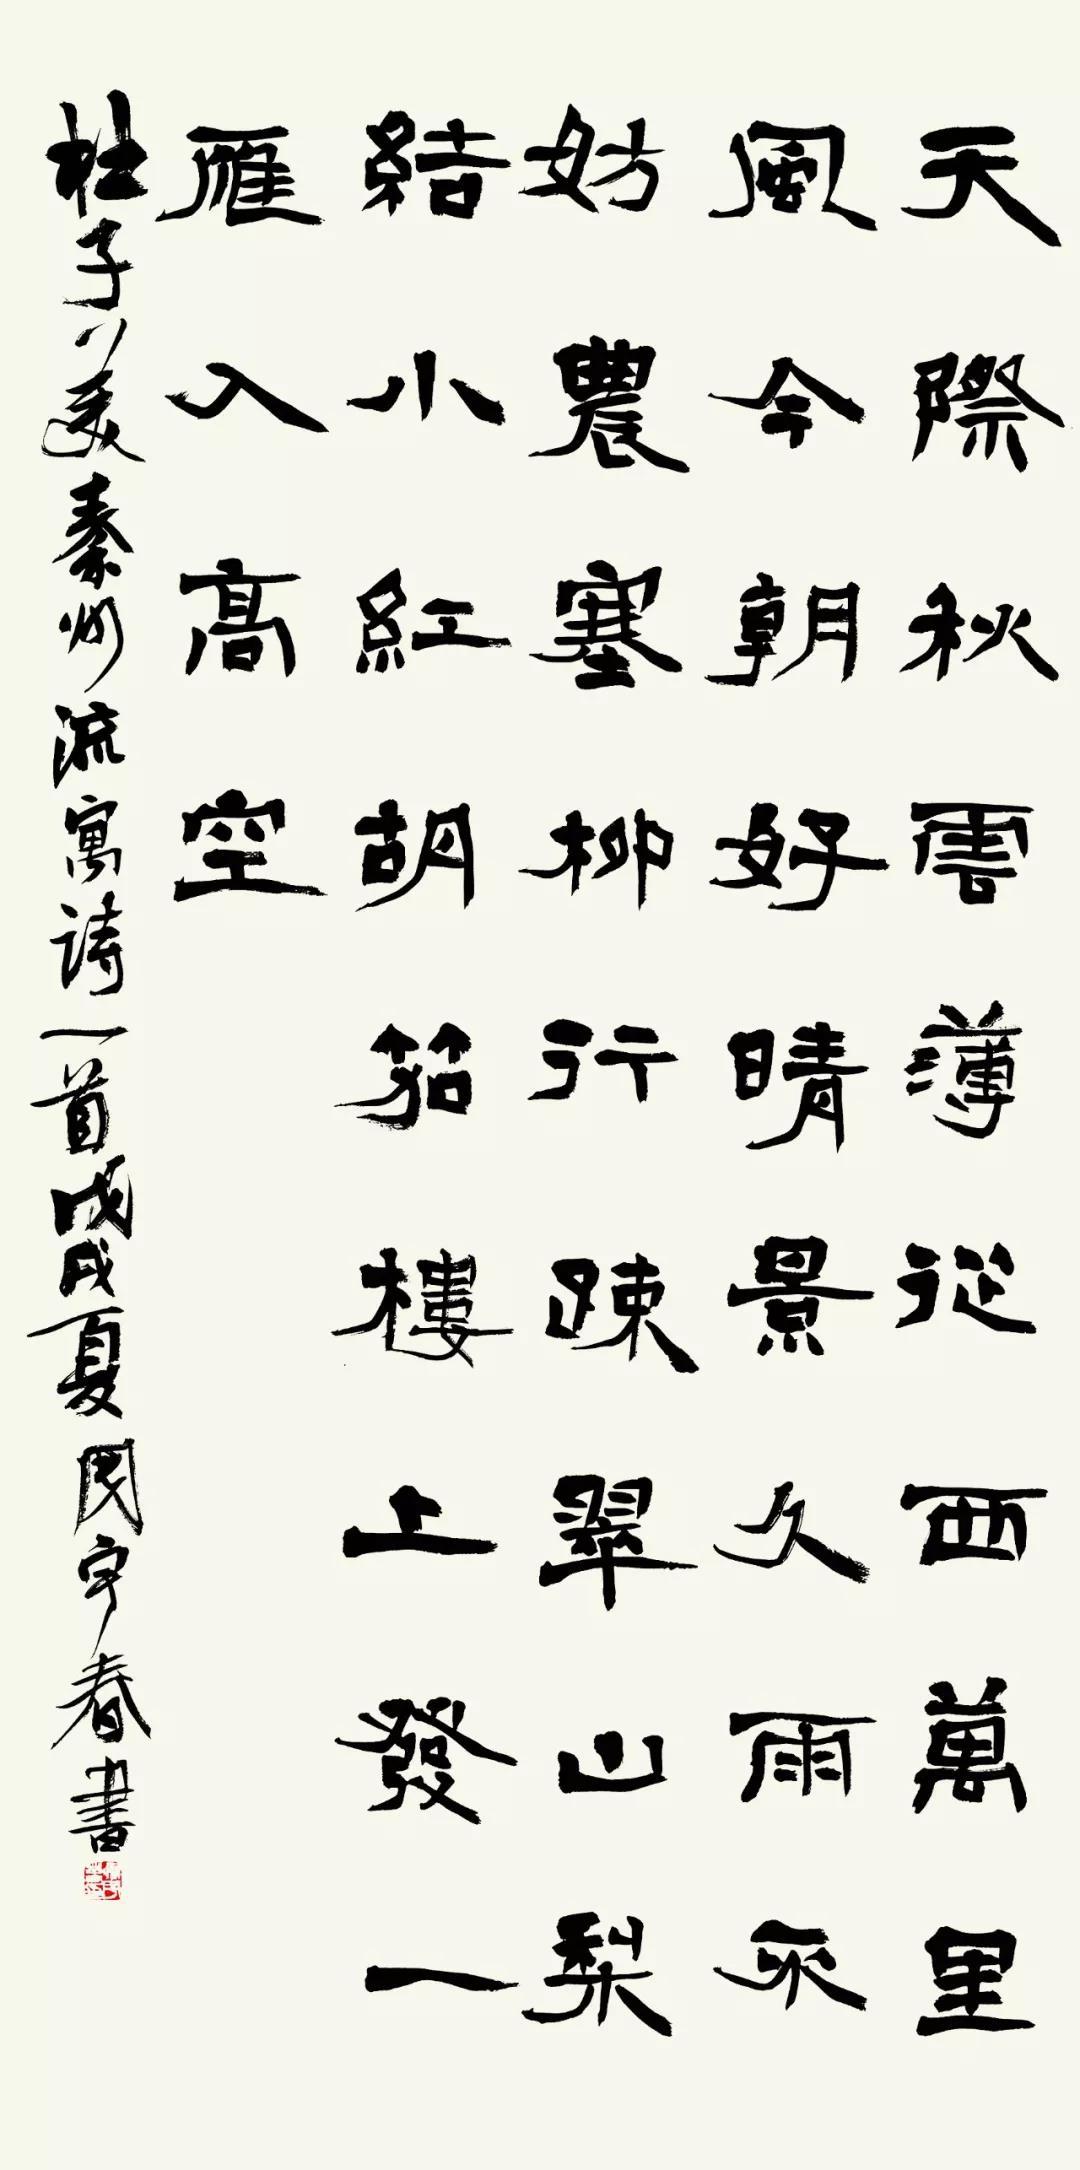 天際秋雲薄從西萬里
風今朝好晴景久雨不
妨農塞柳行踈翠山梨
結小紅胡笳樓上發一
雁入高空
杜子美秦州流寓詩一首戊戌夏周宇春書